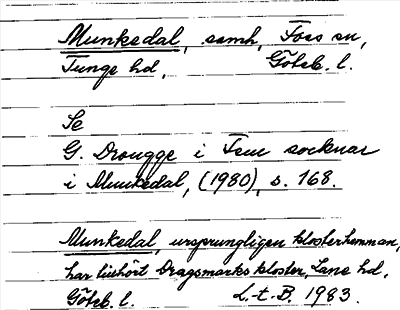 Munkedal, samh, Foss sn,
Tunge hd, Göteb. l.
Se
G. Drougge i Fem socknar
i Munkedal, (1980), s. 168.
Munkedal, ursprungligen klosterhemman,
har tillhört Dragsmarks kloster, Lane hd,
Göteb. l. L.-t. B. 1983.